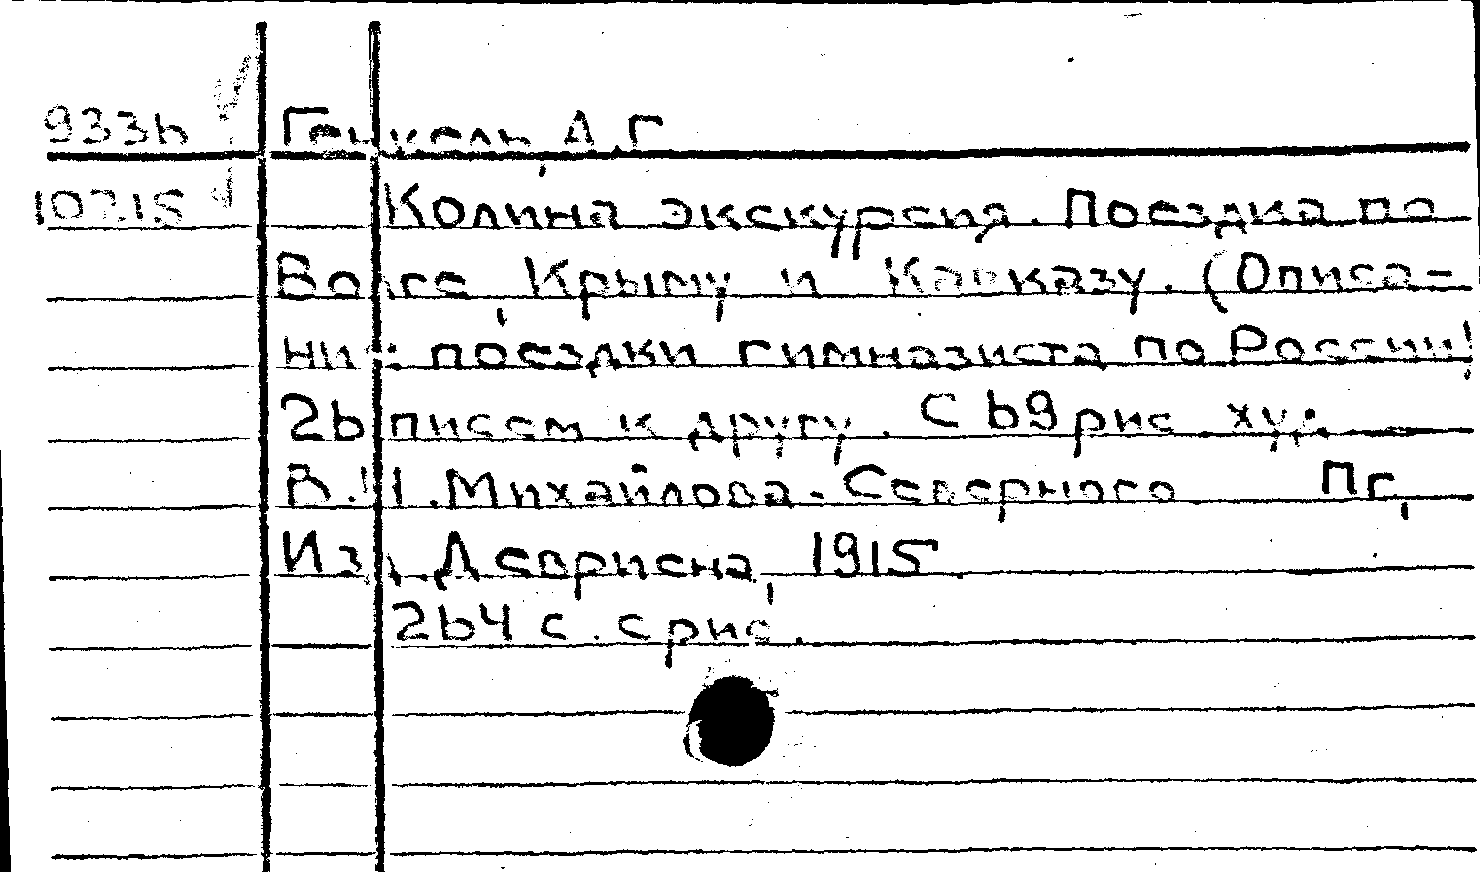 9336 Генкель, А.Г.
10215 Колина экскурсия. Поездка по
Волге, Крыму и Кавказу. (Описа=
ние поездки гимназиста по России!
26 писем к другу. С 69 рис. худ.
В.П. Михайлова-Северного Пг,
Изд. Девриена, 1915
264 с. с рис.